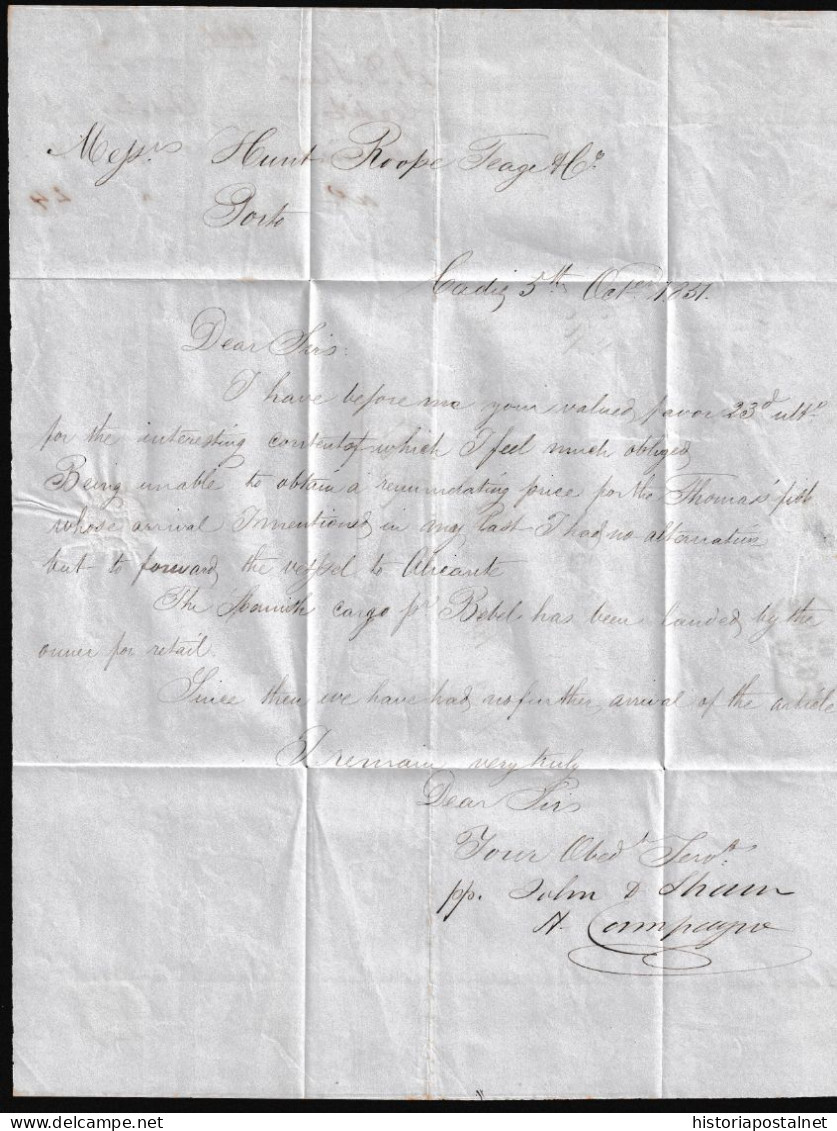 Messrs Hunt Roope Teage & Co
Porto
Cadiz 5th Octer 1851.
Dear Sirs
I have before me your valued favor 23d ulto
for the interesting content of which I feel much obliged
Being unable to obtain a remunerating price for the Thomas' fish
whose arrival I mentioned in my last I had no alternative
but to forward the vessel to Alicante
The cargo pr has been landed by the
owner for retail.
Since then we have had no further arrival of the article
I remain very truly
Dear Sirs
Your Obedt Servt.
pp. John D Shaw
A. Campagne
24
historiapostalnet